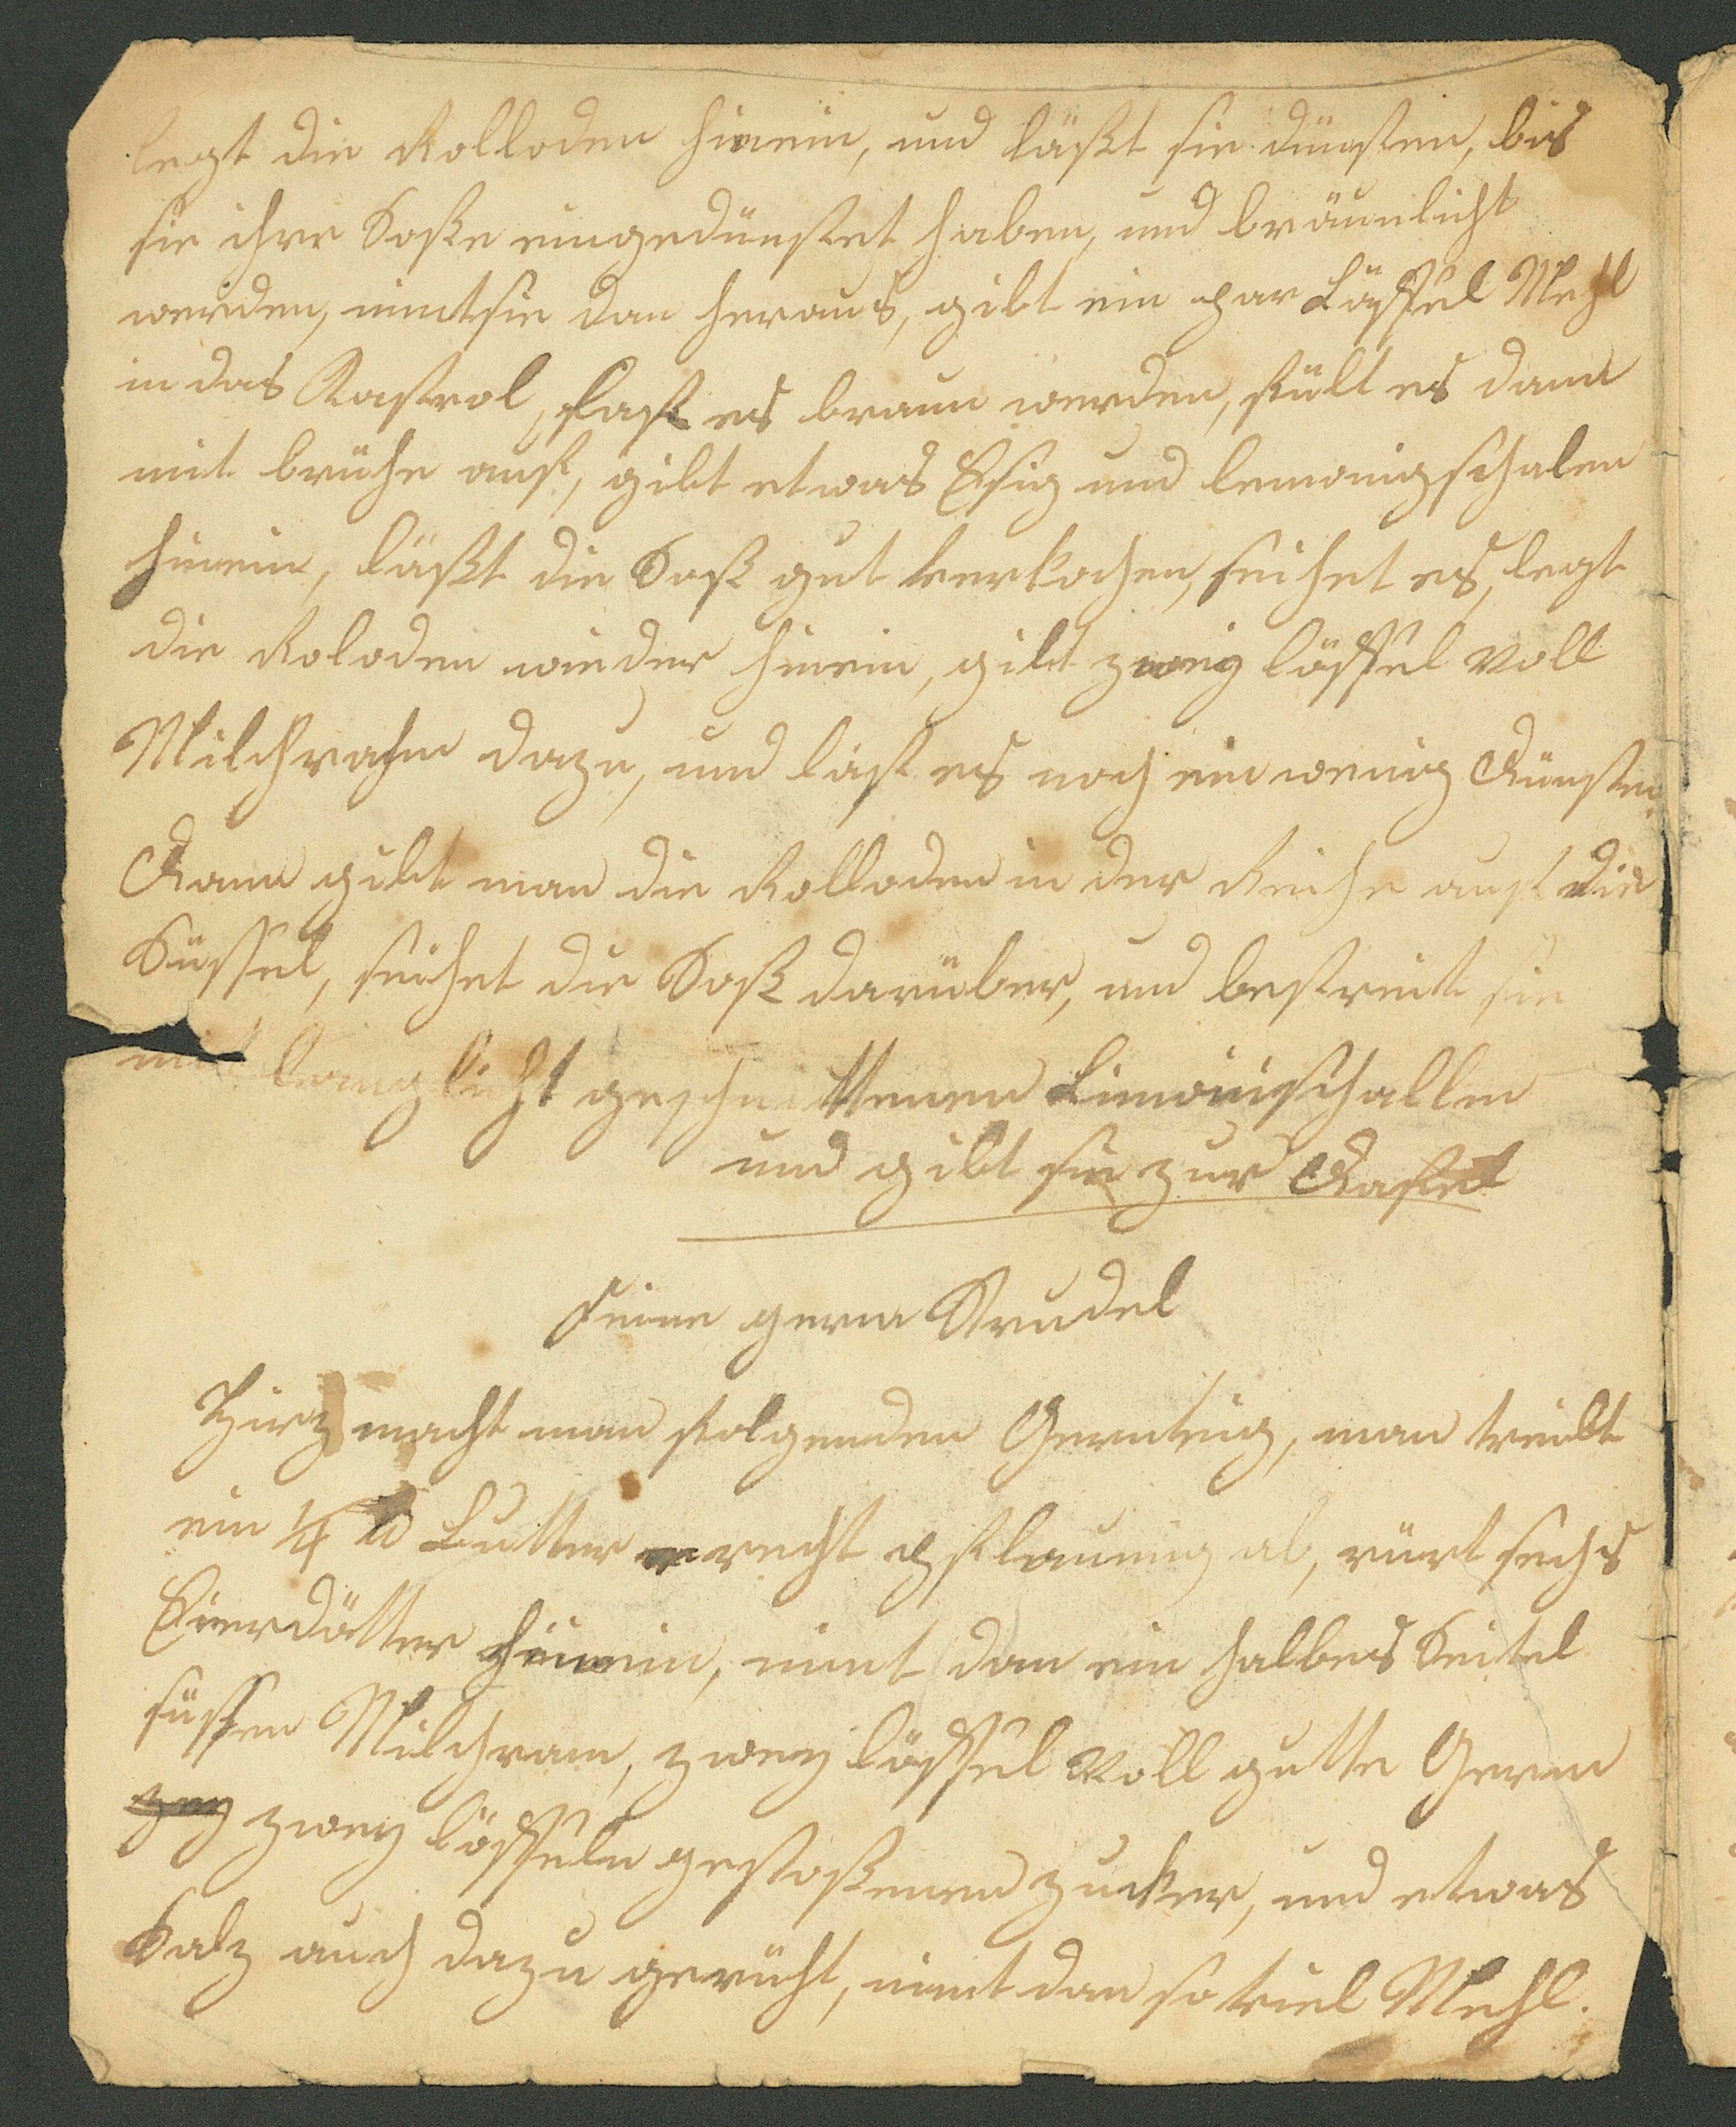 legt die Rolloden hinein, und läßt sie dünsten, bis
sie ihre Soße eingedünstet haben, und bräunlicht
werden, nimt sie dan heraus, gibt ein par Löffel Mehl
in das Kastrol, last es braun werden, fült es dann
mit brühe auf, gibt etwas Esig und lemonigschalen
hinein, läßt die Soß gut verkochen, seihet es, legt
die Roloden wieder hinein, gibt zweig löffel voll
Milchrahm dazu, und läst es noch ein wenig Dünsten
Dann gibt man die Rolloden in der Reihe auf die
Süssel, seihet die Soß darüber, und bestreit sie
mit länglicht geschnittenen Limonischallen
und gibt sie zur Dafel
Feine germ Strudel
Hirzu macht man folgenden Germteig, man treibt
ein 1/4 ℔ Butter recht pflaumig ab, rürt sechs
Eierdötter hinein, nimt dan ein halbes Seitel
süssen Milchram, zwey löffel voll gutte Germ
zey zwey löffeln gestoßenen zucker, und etwas
Salz auch dazu gerüht, nimt dan so viel Mehl.